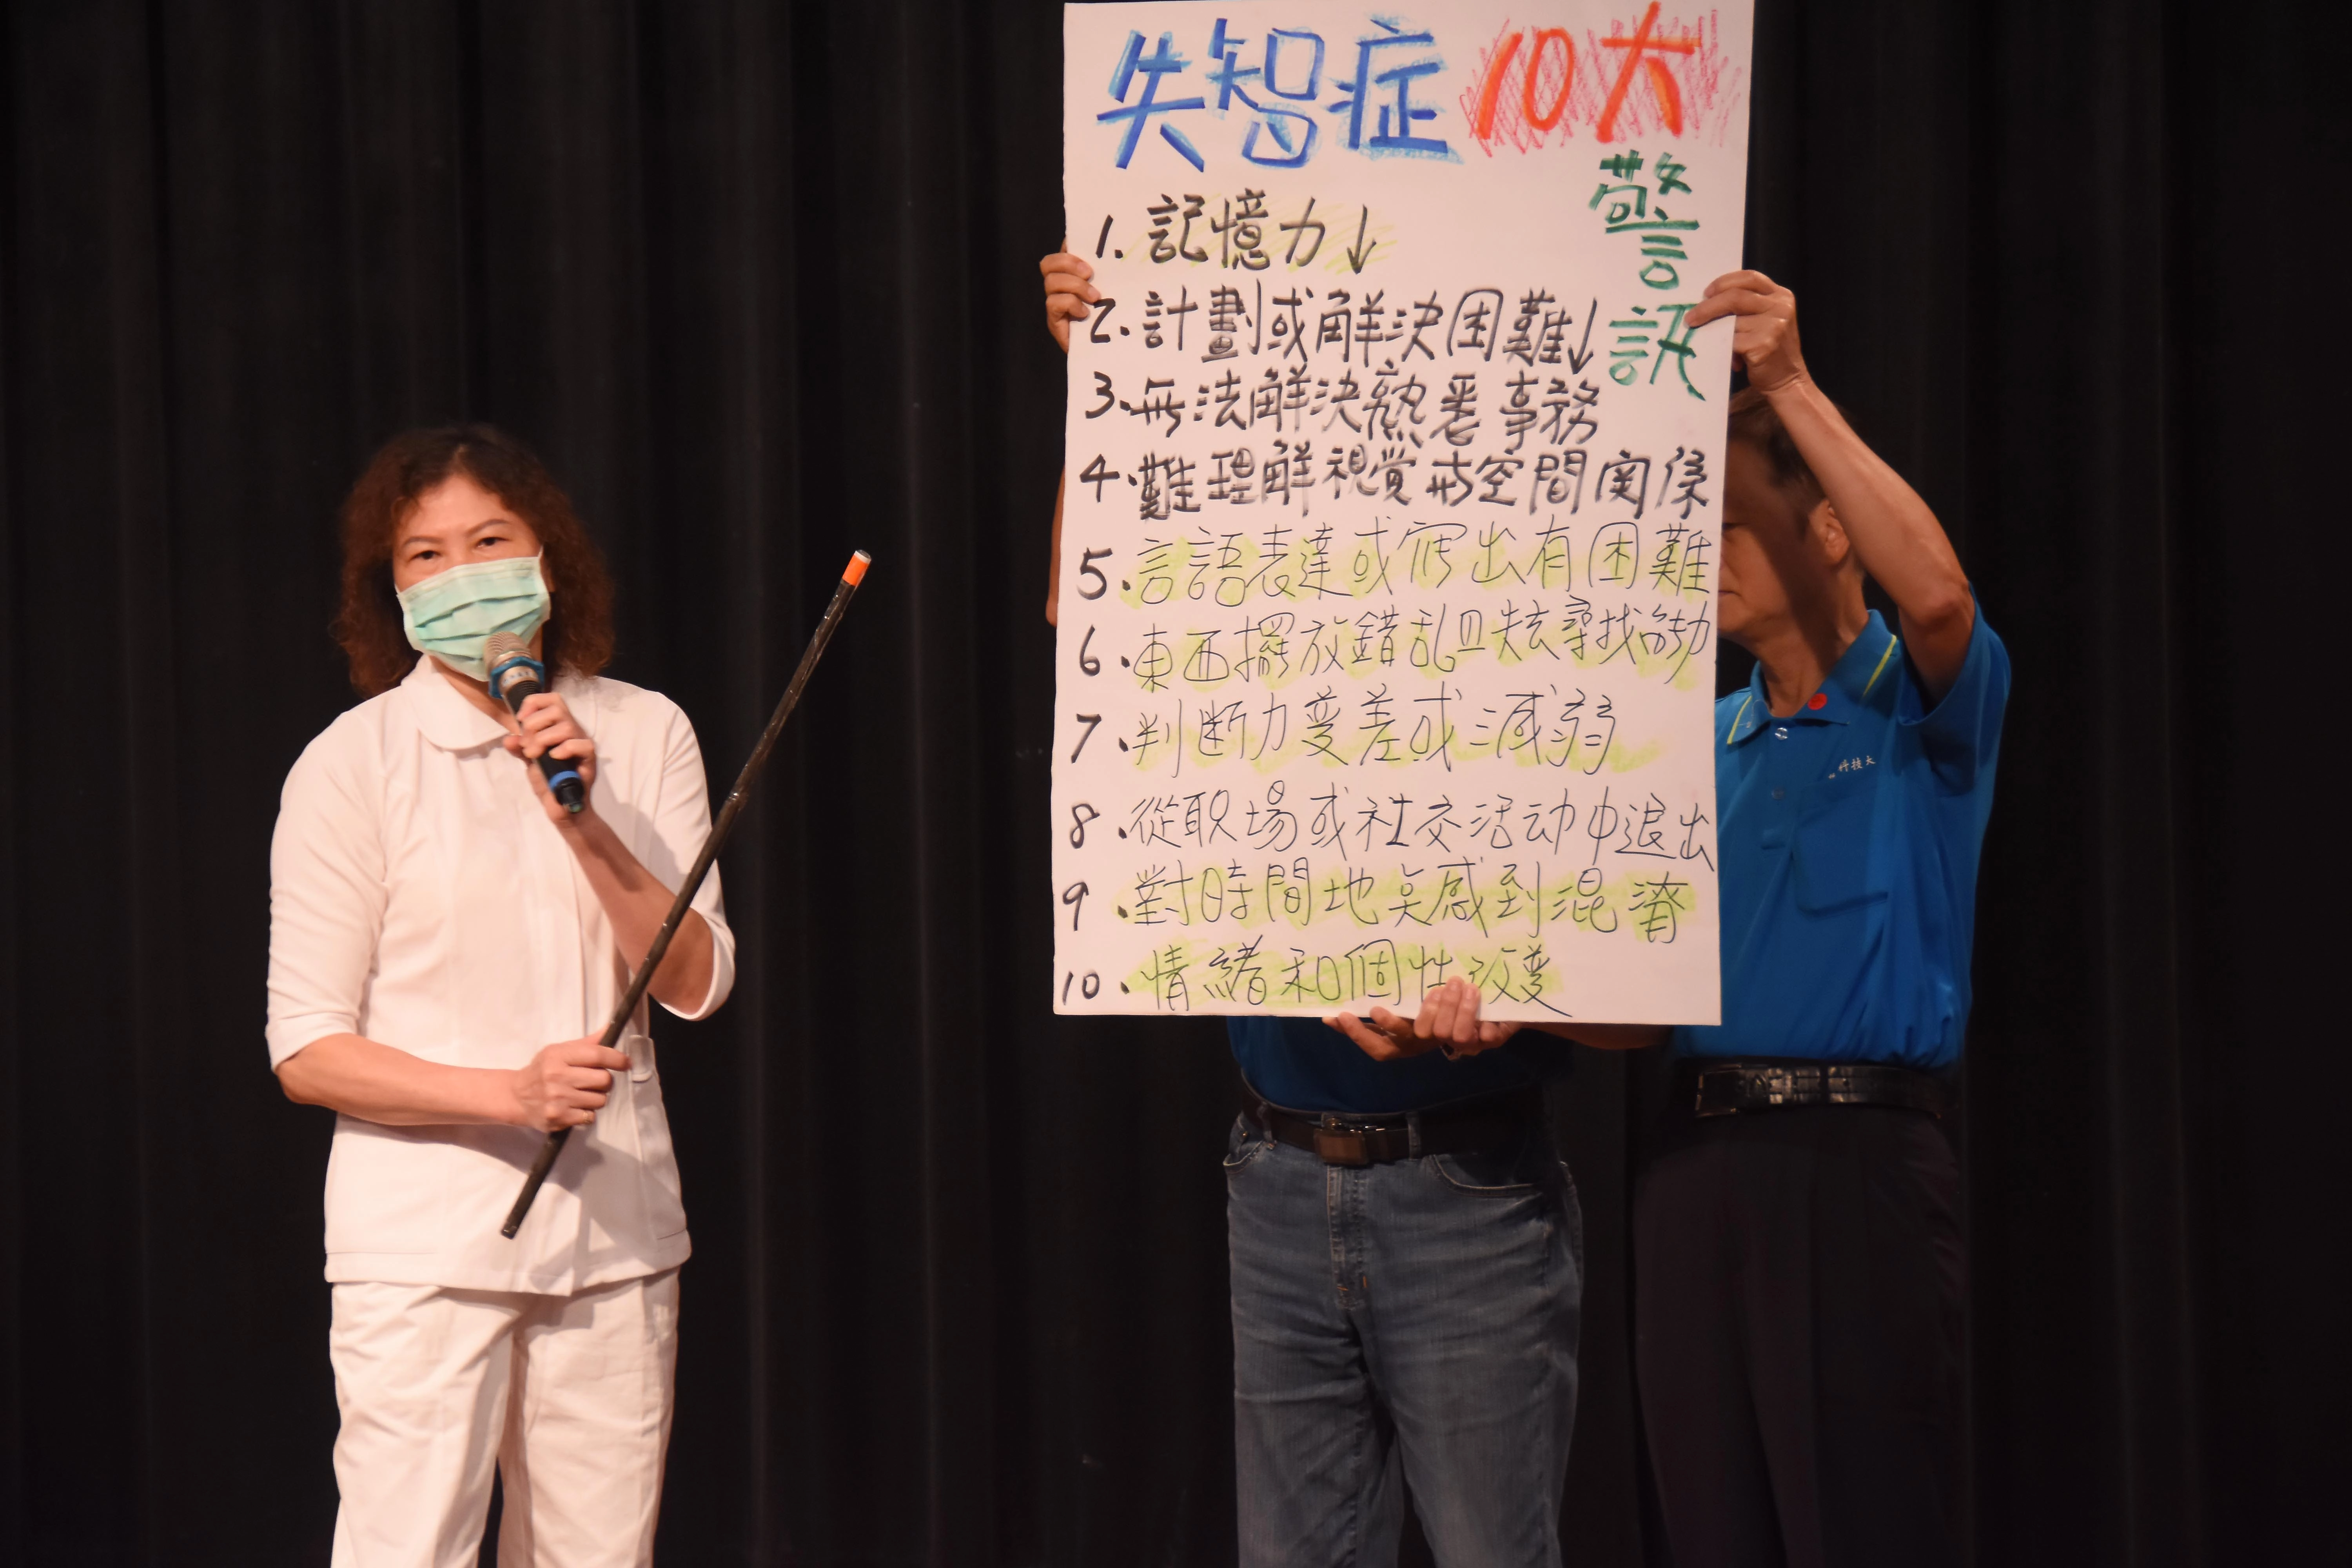 失智症10大
警訊
1.記憶力↓
2.計劃或解決困難↓
3.無法解決熟悉事務
4.難理解視覺或空間関係
5.言語表達或寫出有困難
6.東西擺放錯乱且失去尋找能力
7.判断力変差或減弱
8.從职场或社交活动中退出
9.對時間地点感到混淆
10.情緒和個性改変
科技大